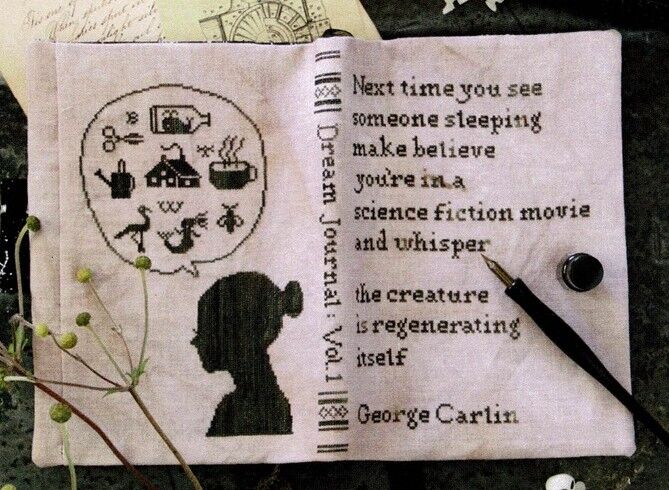 Dream Journal: Vol. 1
Next time you see
someone sleeping
make believe
you're in a
science fiction movie
and whisper
the creature
is regenerating
itself
George Carlin